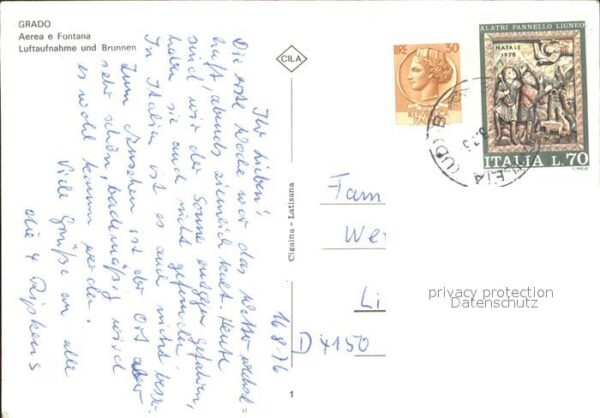 GRADO
Aerea e Fontana
Luftaufnahme und Brunnen
CILA
Cigaina - Latisana
1
LIRE 30
REPVBBLICA
ITALIANA
ALATRI PANNELLO LIGNEO
NATALE
1975
ITALIA L.70
(UD)
16 8. 76
Ihr Lieben!
Die erste Woche war das Wetter wechsel=
haft, abends ziemlich kalt. Heute
sind wir der Sonne entgegen gefahren,
haben sie auch nicht gefunden.
In Italien ist es auch nicht besser.
Zum Anschen ist der Ort aber
sehr schön, bademäßig wird
es wohl kaum werden.
Viele Grüße an alle
die 4 Ripkens
Fam
We
Li
D 4150
privacy protection
Datenschutz